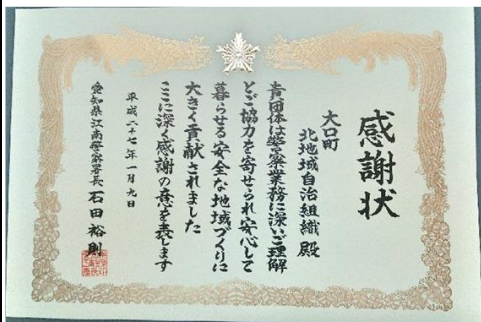 感謝状
大口町
北地域自治組織 殿
貴団体は警察業務に深いご理解
とご協力を寄せられ安心して
暮らせる安全な地域づくりに
大きく貢献されました
ここに深く感謝の意を表します
平成二十七年一月九日
愛知県江南警察署長 石田裕則